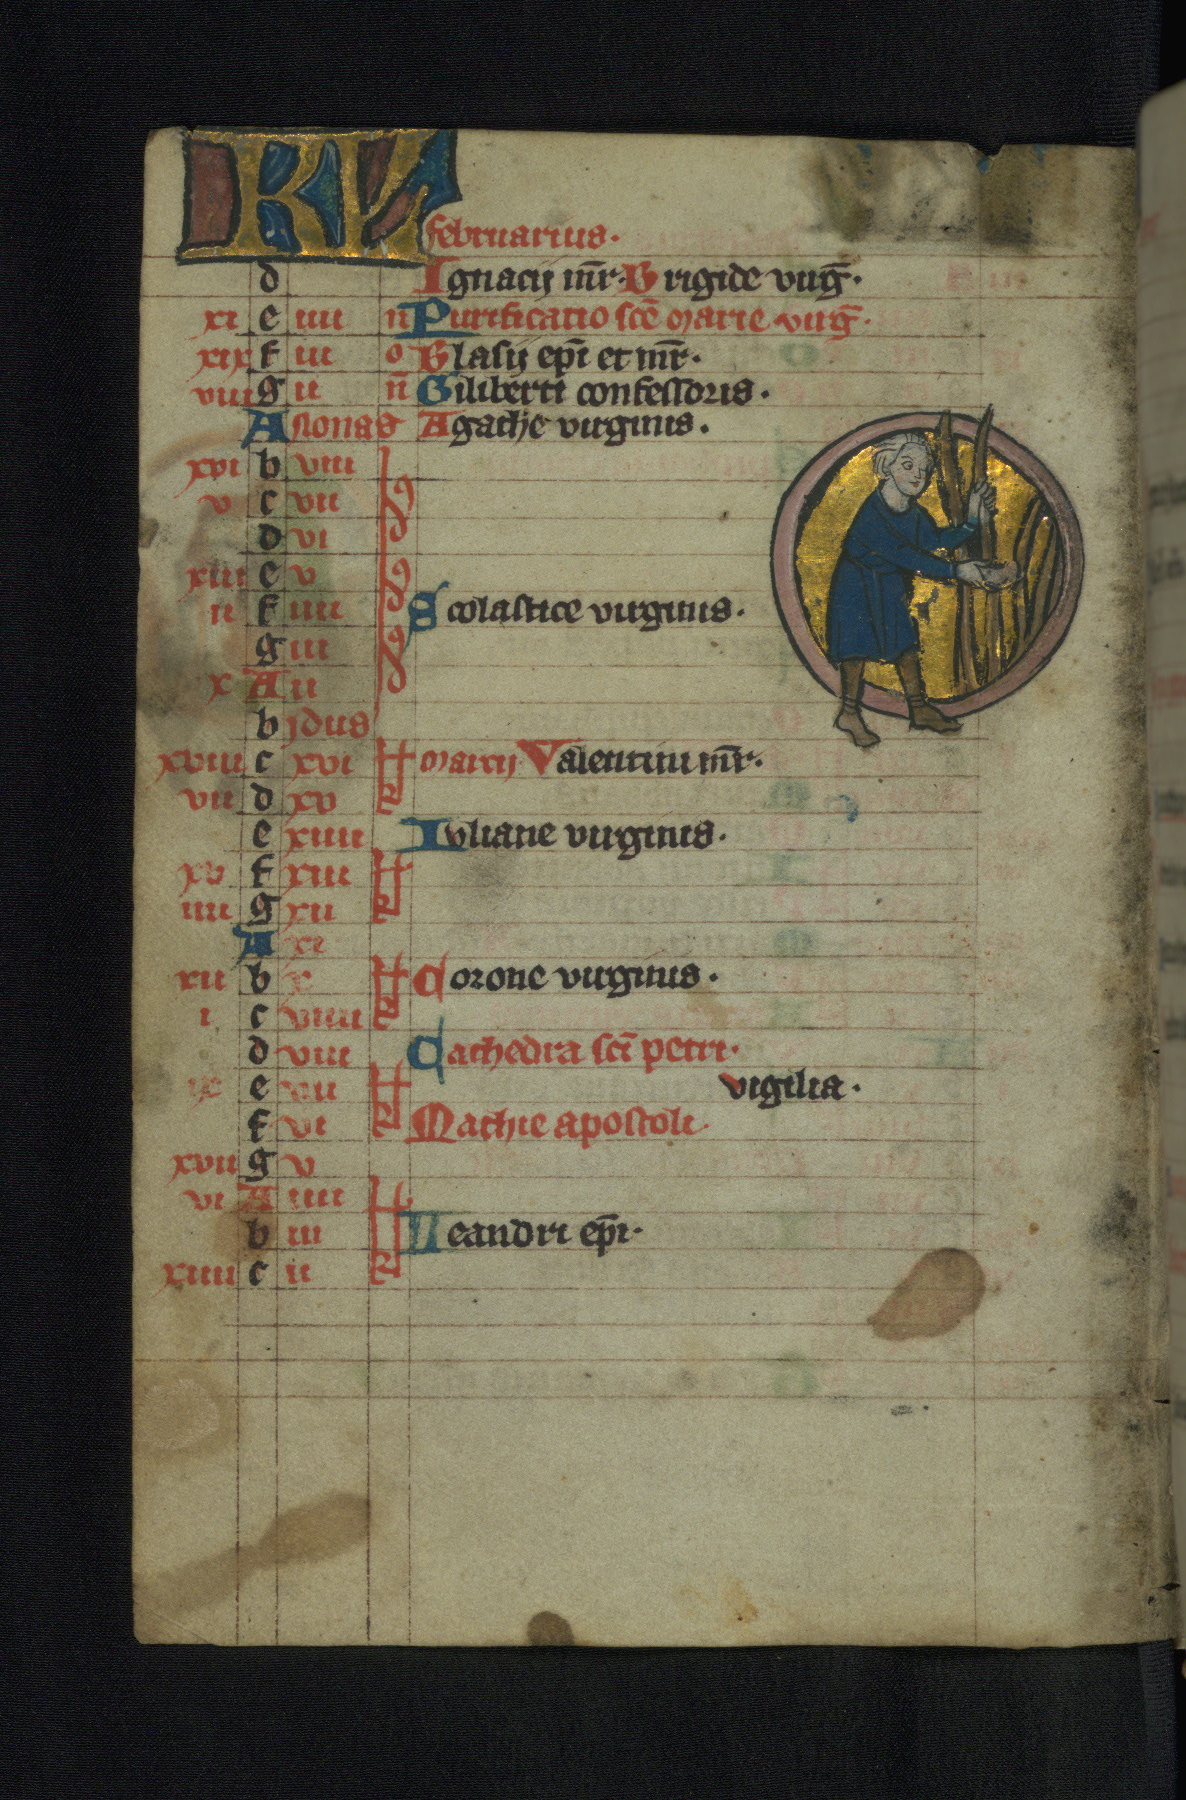 KL
februarius.
d Ignacij mr̄. Brigide virḡ.
xi e iiii n̄ Purificatio scē marie virḡ.
xix f iii o Blasij ep̄i et mr̄.
viii g ii n̄ Giliberti confessoris.
A Nonas Agathe virginis.
xvi b viii
v c vii
d vi
xiii e v
ii f iiii Scolastice virginis.
g iii
x A ii
b jdus
xviii c xvi marcij Valentini mr̄.
vii d xv
e xiiii Iuliane virginis.
xv f xiii
iiii g xii
A xi
xii b x Corone virginis.
i c viiii
d viii Cathedra scī petri.
ix e vii vigilia.
f vi Mathie apostoli.
xvii g v
vi A iiii
b iii Leandri ep̄i.
xiiii c ii